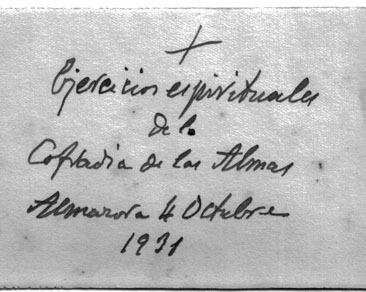 Ejercicios espirituales
de la
Cofradia de las Almas
Almazora 4 Octubre
1931